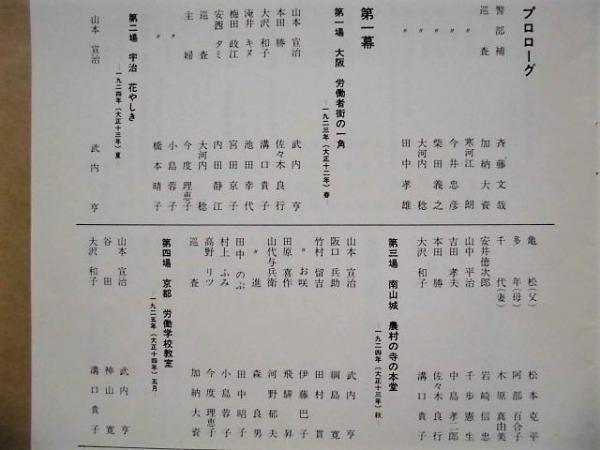 プロローグ
警部補 斉藤文哉
巡査 加納大資
〃 寒河江朗
〃 今井忠彦
〃 柴田義之
〃 大河内稔
〃 田中孝雄
第一幕
第一場 大阪 労働者街の一角
―一九二三年(大正十二年)春―
山本宣治 武内亨
本田勝 佐々木良行
大沢和子 溝口貴子
滝井キヌ 池田幸代
梅田政江 宮田京子
安西タミ 内田静江
巡査 大河内稔
主婦 今度理恵子
〃 小島蓉子
〃 橋本晴子
第二場 宇治 花やしき
―一九二四年(大正十三年)夏―
山本宣治 武内亨
亀松(父) 松本克平
多年(母) 阿部百合子
千代(妻) 木原真由美
安井徳次郎 岩崎信忠
山中平治 千歩憲生
吉田孝夫 中島孝二郎
本田勝 佐々木良行
大沢和子 溝口貴子
第三場 南山城 農村の寺の本堂
―一九二四年(大正十三年)秋―
山本宣治 武内亨
阪口兵助 綱島寛
竹村留吉 田村貫
〃お咲 伊藤巴子
田原喜作 飛騨昇
山代与兵衛 河野郁夫
〃進 森良男
田中のぶ 田中昭子
村上ふみ 小島蓉子
高野リツ 今度理恵子
巡査 加納大資
第四場 京都 労働学校教室
―一九二五年(大正十四年)五月―
山本宣治 武内亨
谷田 神山寛
大沢和子 溝口貴子